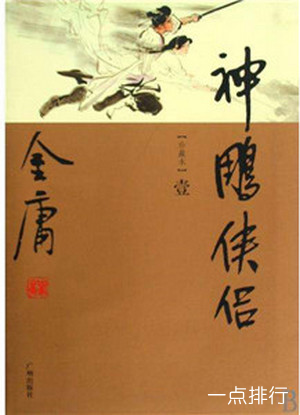 神鵰侠侣
【珍藏本】
壹
金庸
广州出版社
一点排行